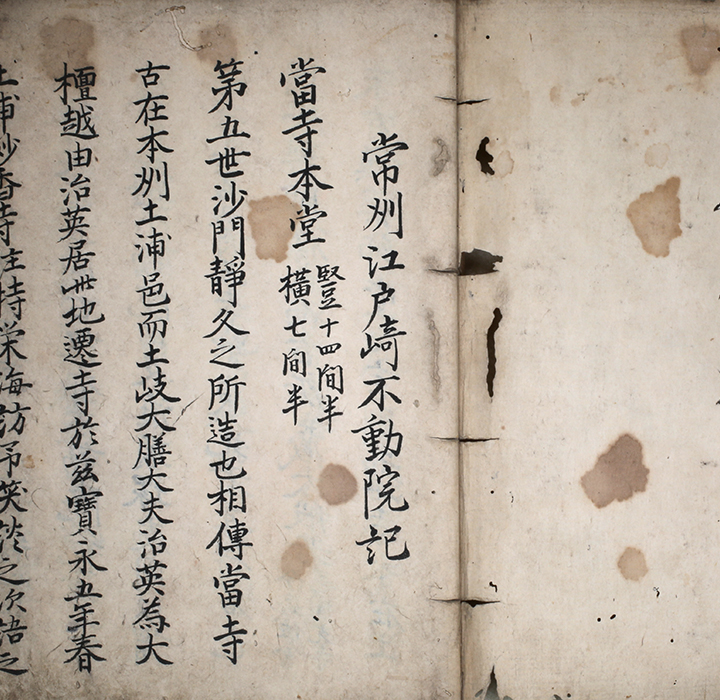 常刕江戸﨑不動院記
當寺本堂 竪十四間半
橫七間半
第五世沙門靜久之所造也相傳當寺
古在本刕土浦邑而土岐大膳大夫治英為大
檀越由治英居此地遷寺於兹寶永五年春
土浦妙香寺住持栄海訪予笑談之次語之